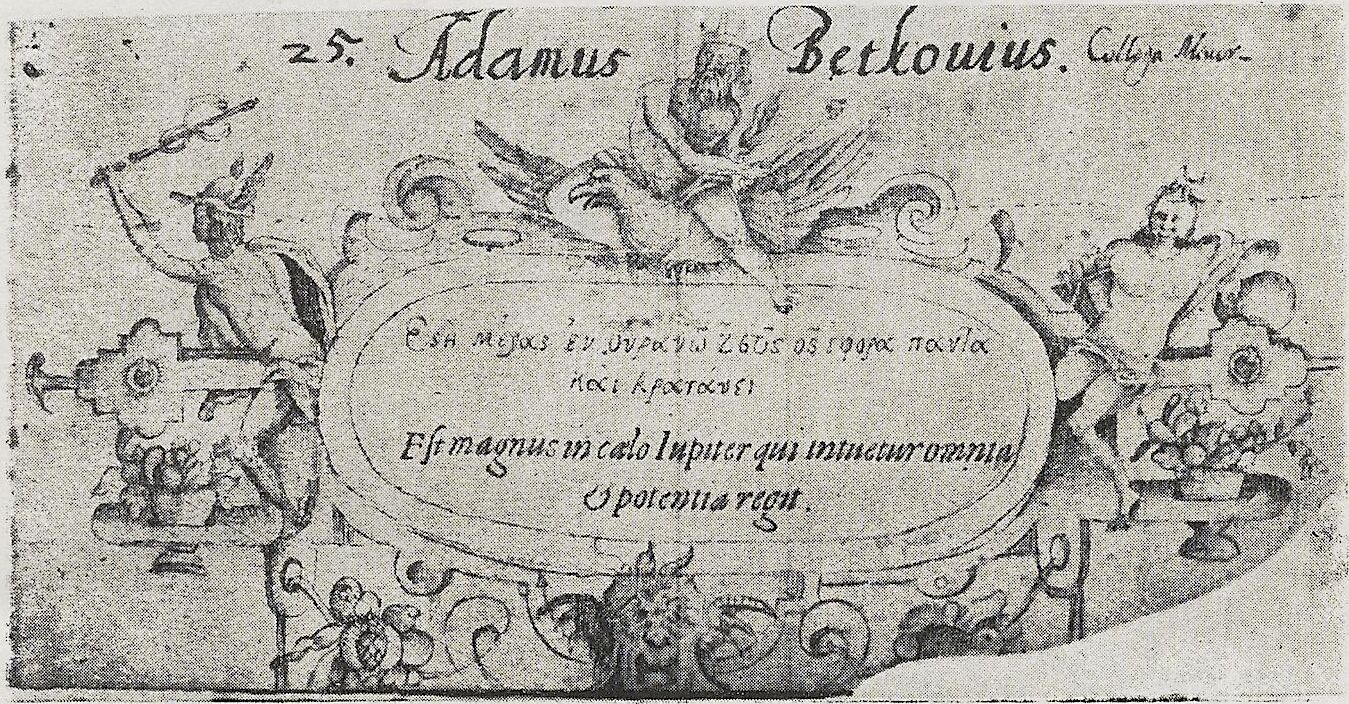 25. Adamus Bętkouius. Collega Minor
Εϛι μέγας ἐν οὐρανῶ Ζεῦς ὃς εφορα παντα
και κρατάυει
Eſt magnus in cælo Iupiter qui intuetur omnia
& potentia regit.